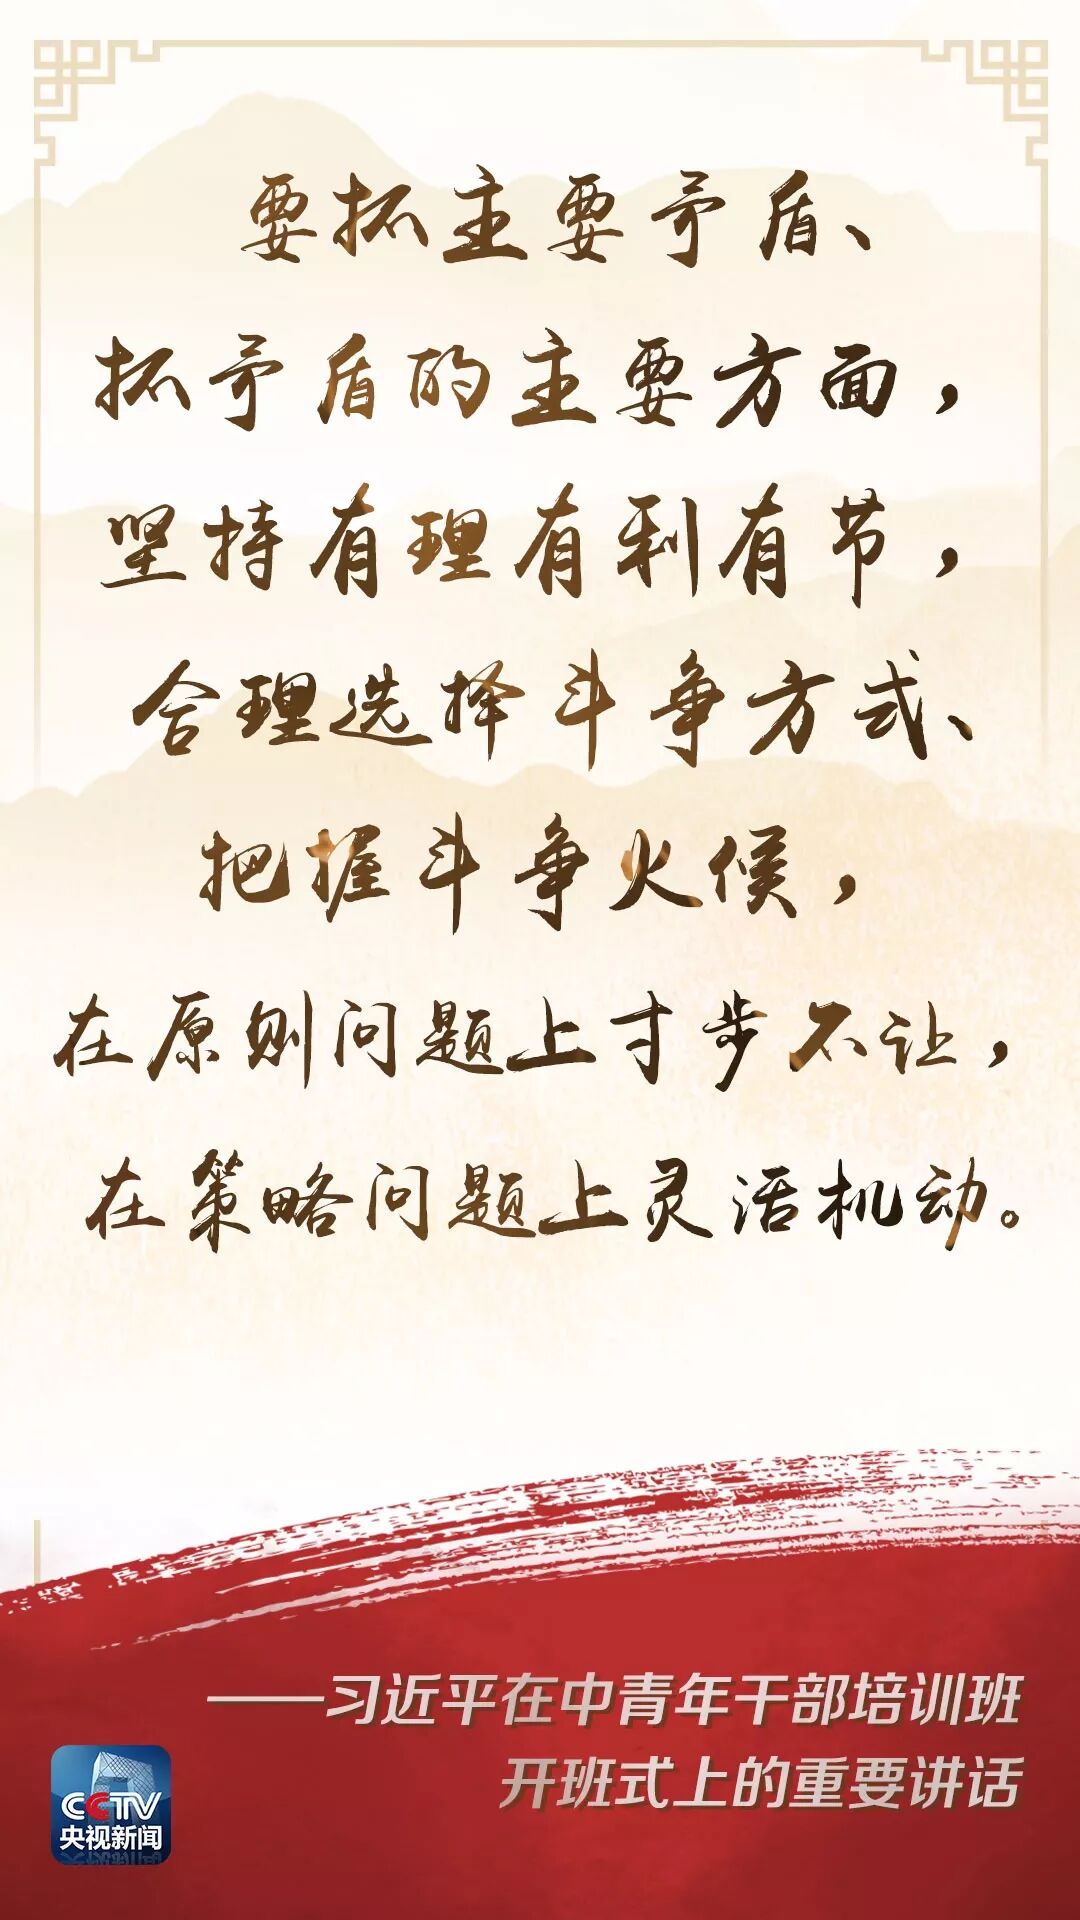 要抓主要矛盾、
抓矛盾的主要方面，
坚持有理有利有节，
合理选择斗争方式、
把握斗争火候，
在原则问题上寸步不让，
在策略问题上灵活机动。
——习近平在中青年干部培训班
开班式上的重要讲话
CCTV
央视新闻